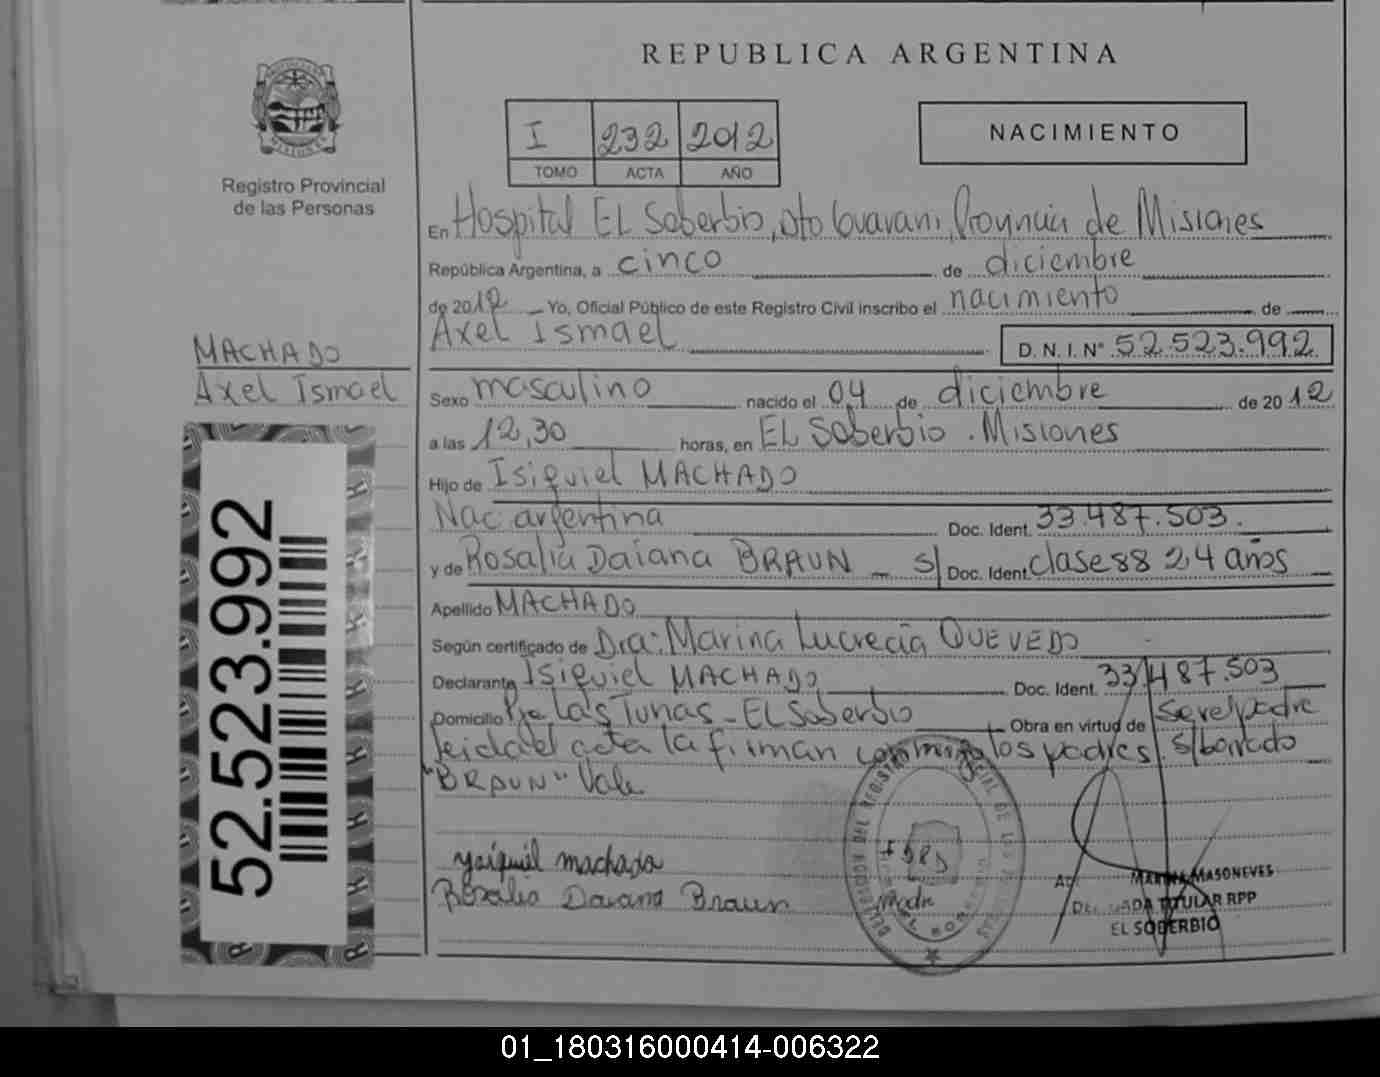 REPUBLICA ARGENTINA
I 232 2012
TOMO ACTA AÑO
NACIMIENTO
Registro Provincial
de las Personas
MACHADO
Axel Ismael
52.523.992
En Hospital EL Soberbio, Dto Guarani, Provincia de Misiones
República Argentina, a cinco de diciembre
de 2012 Yo, Oficial Público de este Registro Civil inscribo el nacimiento de
Axel Ismael D.N.I.Nº 52.523.992
Sexo masculino nacido el 04 de diciembre de 2012
a las 12,30 horas, en EL Soberbio . Misiones
Hijo de Isiquiel MACHADO
Nac argentina Doc. Ident. 33.487.503.
y de Rosalia Daiana BRAUN s/ Doc. Ident. clase 88 24 años
Apellido MACHADO
Según certificado de Dra: Marina Lucrecia QUEVEDO
Declarante Isiquiel MACHADO Doc. Ident. 33.487.503
Domicilio Pje Las Tunas - EL Soberbio Obra en virtud de ser el padre
leida el acta la firman conmigo los padres. s/borrado
"BRAUN" Vale
ysiquiel machado
Rosalia Daiana Braun
MASONEVES
TITULAR RPP
EL SOBERBIO
01_180316000414-006322